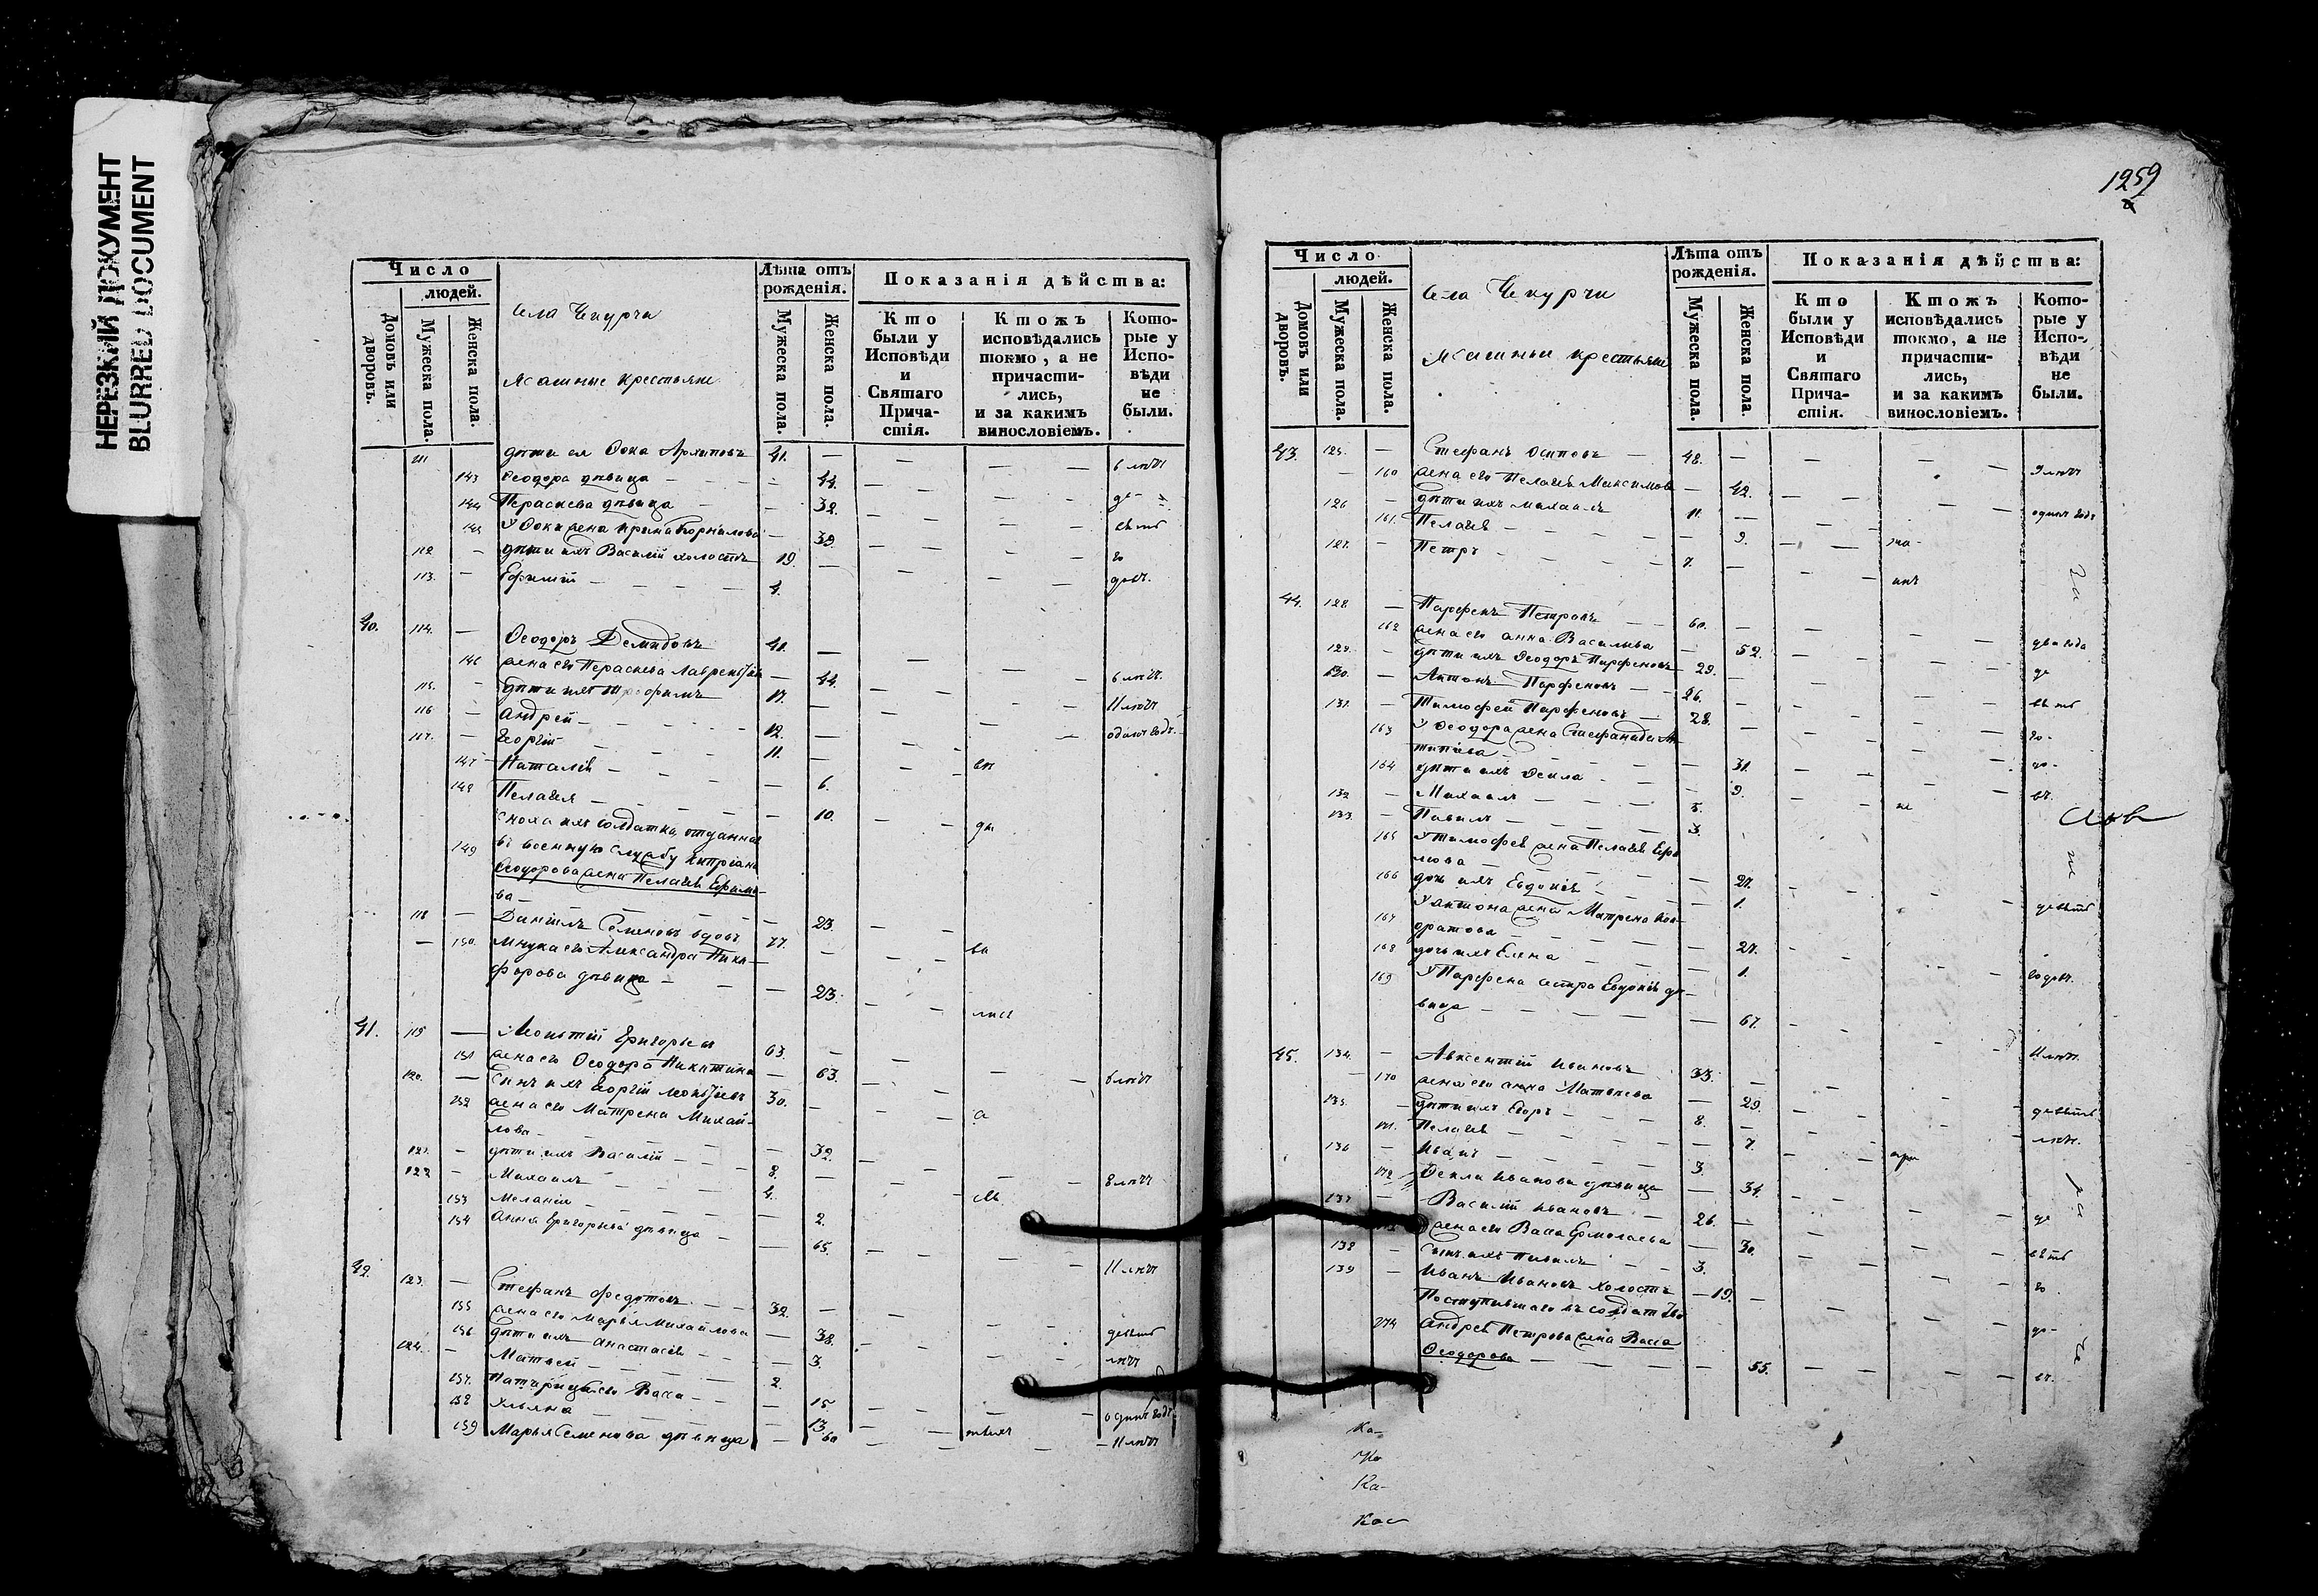 НЕРЕЗКИЙ ДОКУМЕНТ
BLURRED DOCUMENT
Число
людей.
Домовъ или дворовъ.
Мужеска пола.
Женска пола.
Села Чекурчи
Ясашные крестьяне
Лѣта отъ рожденія.
Мужеска пола.
Женска пола.
Показанія дѣйства:
Кто были у Исповѣди и Святаго Причастія.
Ктожъ исповѣдались токмо, а не причастились, и за какимъ винословіемъ.
Которые у Исповѣди не были.
111 дѣти ея Фока Архиповъ 41. 6 лѣтъ
143 Феодора дѣвица 44.
144 Параскева дѣвица 39.
У Фоки жена Ирина Корнилова 39.
112 дѣти ихъ Василій холостъ 19.
113. Ефимій 4.
40. 114. Феодоръ Демидовъ 41.
146 жена его Параскева Лаврентьева 44. 6 лѣтъ.
115. дѣти ихъ Трофимъ 17. 11 лѣтъ
116 Андрей 12. одинъ годъ.
117. Георгій 11.
147 Наталія 6.
148 Пелагія 10.
сноха ихъ солдатка, отданнаго
149 въ военную службу Кипріана
Феодорова жена Пелагія Ефимо-
ва 23.
118 Даніилъ Семеновъ вдовъ 77.
150. Внука его Александра Ники-
форова дѣвица 23.
41. 119 Леонтій Григорьевъ 63.
151 жена его Феодора Никитина 63. 6 лѣтъ
120. Сынъ ихъ Георгій Леонтьевъ 30.
152 жена его Матрена Михай-
лова 32.
121. дѣти ихъ Василій 8. 8 лѣтъ
122 Михаилъ 4.
153 Меланія 2.
154 Анна Григорьева дѣвица 65. 11 лѣтъ
42. 123. Стефанъ Федотовъ 32.
155 жена его Марья Михайлова 38. девять
156 дѣти ихъ Анастасія 3. лѣтъ
124. Матвей 2.
157. Васса 15 одинъ годъ
158 Ульяна 13.
159 Марья Семенова дѣвица 60 11 лѣтъ
1259
Число
людей.
Домовъ или дворовъ.
Мужеска пола.
Женска пола.
Села Чекурчи
Ясашные крестьяне
Лѣта отъ рожденія.
Мужеска пола.
Женска пола.
Показанія дѣйства:
Кто были у Исповѣди и Святаго Причастія.
Ктожъ исповѣдались токмо, а не причастились, и за какимъ винословіемъ.
Которые у Исповѣди не были.
43. 125. Стефанъ Осиповъ 48. 9 лѣтъ
160 жена его Пелагія Максимова 42.
126 дѣти ихъ Михаилъ 11. одинъ годъ
161. Пелагія 9.
127. Петръ 7.
44. 128. Парфенъ Петровъ 60. два года
162 жена его Анна Васильева 52.
129. дѣти ихъ Феодоръ Парфеновъ 29.
130. Антонъ Парфеновъ 26.
131. Тимофей Парфеновъ 28.
163 У Феодора жена Стефанида Ан-
типіева 31.
164 дѣти ихъ Фекла 9.
132 Михаилъ 5.
133. Павелъ 3.
165 У Тимофея жена Пелагія Ера-
мова 27.
166 дочь ихъ Евдокія 1.
У Антона жена Матрена Кон-
167 дратова 27.
168 дочь ихъ Елена 1.
169 У Парфена сестра Евдокія дѣ-
вица 67. 11 лѣтъ.
45. 134. Авксентій Ивановъ 33.
170 жена его Анна Матвѣева 29. девять
135. дѣти ихъ Егоръ 8. лѣтъ.
171. Пелагія 7.
136 Иванъ 3.
172 Фекла Иванова дѣвица 34.
137 Василій Ивановъ 26.
жена его Васса Ермолаева 30.
138 Сынъ ихъ Павелъ 3.
139 Иванъ Ивановъ холостъ 19.
Поступившаго въ солдатство
174 Андрея Петрова жена Васса
Феодорова 55.
Ка-
Ка-